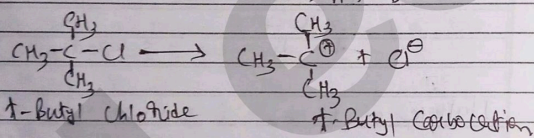 CH₃ CH₃
CH₃-C-Cl ⟶ CH₃-C⊕ + Cl⊖
CH₃ CH₃
t-Butyl Chloride t-Butyl Carbocation